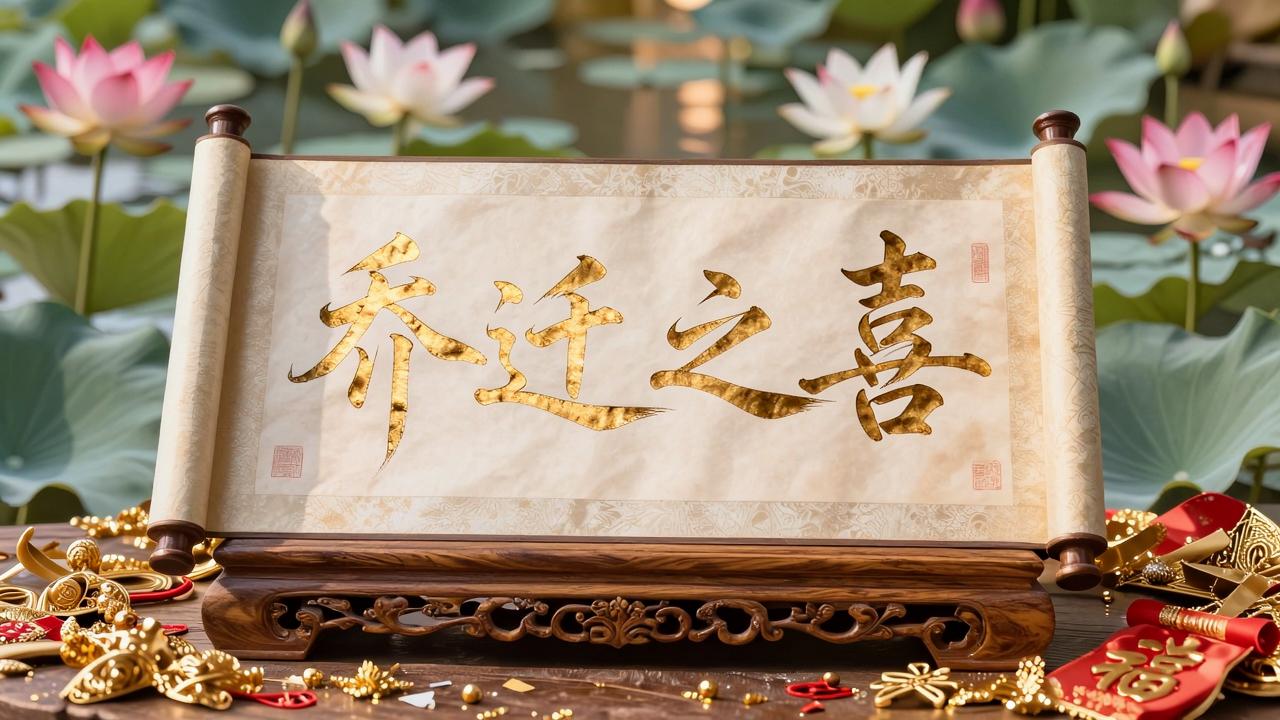 乔迁之喜
福